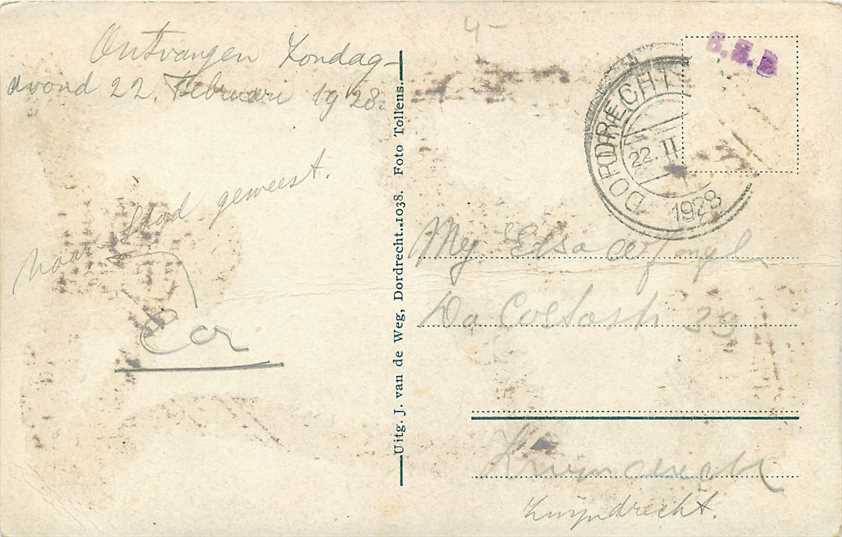 4-
Ontvangen Zondag-
avond 22. Februari 1928.
naar Stad geweest.
Cor
Uitg. J. van de Weg, Dordrecht..1038. Foto Tollens.
S.S.B
DORDRECHT
22.II
1928
Mej. Elsa
Da Costastr 39
Zwijndrecht
Zwijndrecht.